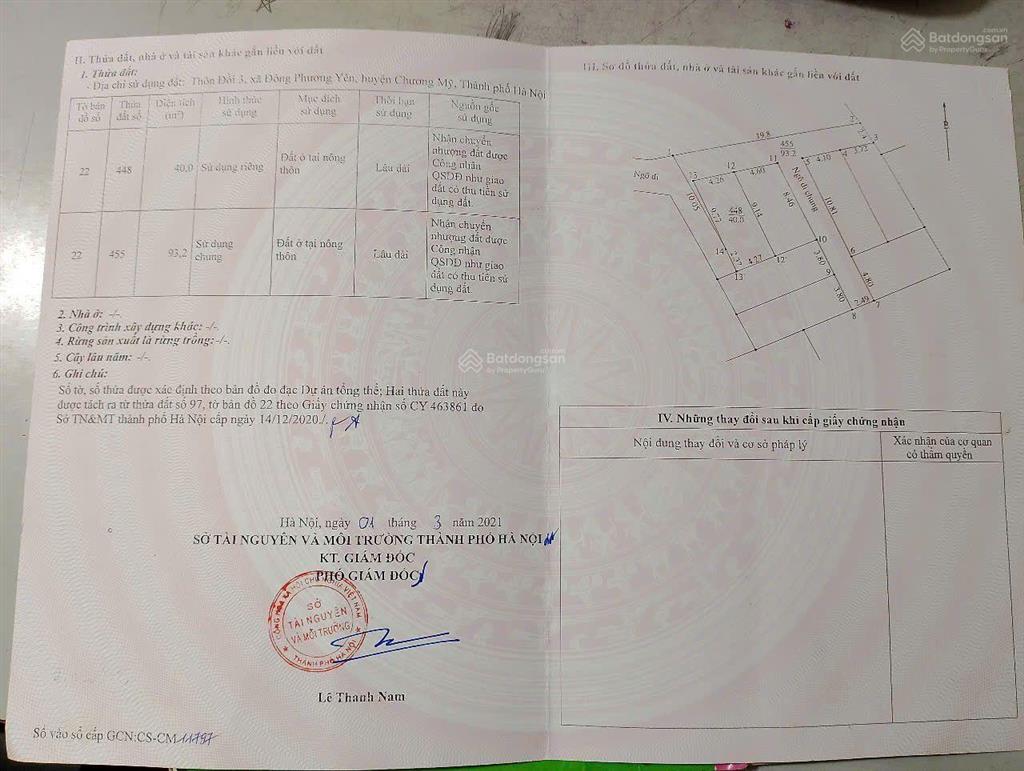 II. Thửa đất, nhà ở và tài sản khác gắn liền với đất
1. Thửa đất:
- Địa chỉ sử dụng đất: Thôn Đồi 3, xã Đông Phương Yên, huyện Chương Mỹ, Thành phố Hà Nội
Tờ bản đồ số | Thửa đất số | Diện tích (m²) | Hình thức sử dụng | Mục đích sử dụng | Thời hạn sử dụng | Nguồn gốc sử dụng
22 | 448 | 40,0 | Sử dụng riêng | Đất ở tại nông thôn | Lâu dài | Nhận chuyển nhượng đất được Công nhận QSDĐ như giao đất có thu tiền sử dụng đất.
22 | 455 | 93,2 | Sử dụng chung | Đất ở tại nông thôn | Lâu dài | Nhận chuyển nhượng đất được Công nhận QSDĐ như giao đất có thu tiền sử dụng đất.
2. Nhà ở: -/-.
3. Công trình xây dựng khác: -/-.
4. Rừng sản xuất là rừng trồng: -/-.
5. Cây lâu năm: -/-.
6. Ghi chú:
Số tờ, số thửa được xác định theo bản đồ đo đạc Dự án tổng thể; Hai thửa đất này
được tách ra từ thửa đất số 97, tờ bản đồ 22 theo Giấy chứng nhận số CY 463861 do
Sở TN&MT thành phố Hà Nội cấp ngày 14/12/2020./.
Hà Nội, ngày 01 tháng 3 năm 2021
SỞ TÀI NGUYÊN VÀ MÔI TRƯỜNG THÀNH PHỐ HÀ NỘI
KT. GIÁM ĐỐC
PHÓ GIÁM ĐỐC
CỘNG HÒA XÃ HỘI CHỦ NGHĨA VIỆT NAM
SỞ
TÀI NGUYÊN
VÀ MÔI TRƯỜNG
THÀNH PHỐ HÀ NỘI
Lê Thanh Nam
Số vào sổ cấp GCN:CS-CM 11797
III. Sơ đồ thửa đất, nhà ở và tài sản khác gắn liền với đất
1
19.8
2
2.4
3
455
93.2
3.72
4
4.10
5
11
4.60
12
4.26
Ngõ đi
10.05
9.77
448
40.0
9.14
8.46
Ngõ đi chung
10.81
14
2.37
13
4.27
12
10
3.80
9
3.80
6
4.80
2.49
7
8
IV. Những thay đổi sau khi cấp giấy chứng nhận
Nội dung thay đổi và cơ sở pháp lý | Xác nhận của cơ quan có thẩm quyền
Batdongsan
.com.vn
by PropertyGuru
Batdongsan
.com.vn
by PropertyGuru